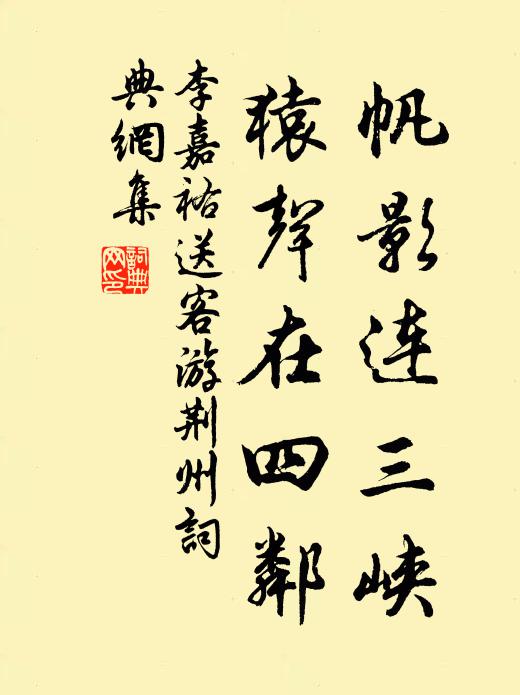 帆影连三峡
猿聲在四鄰
李嘉祐送客游荆州詞
典網集
詞典
网印